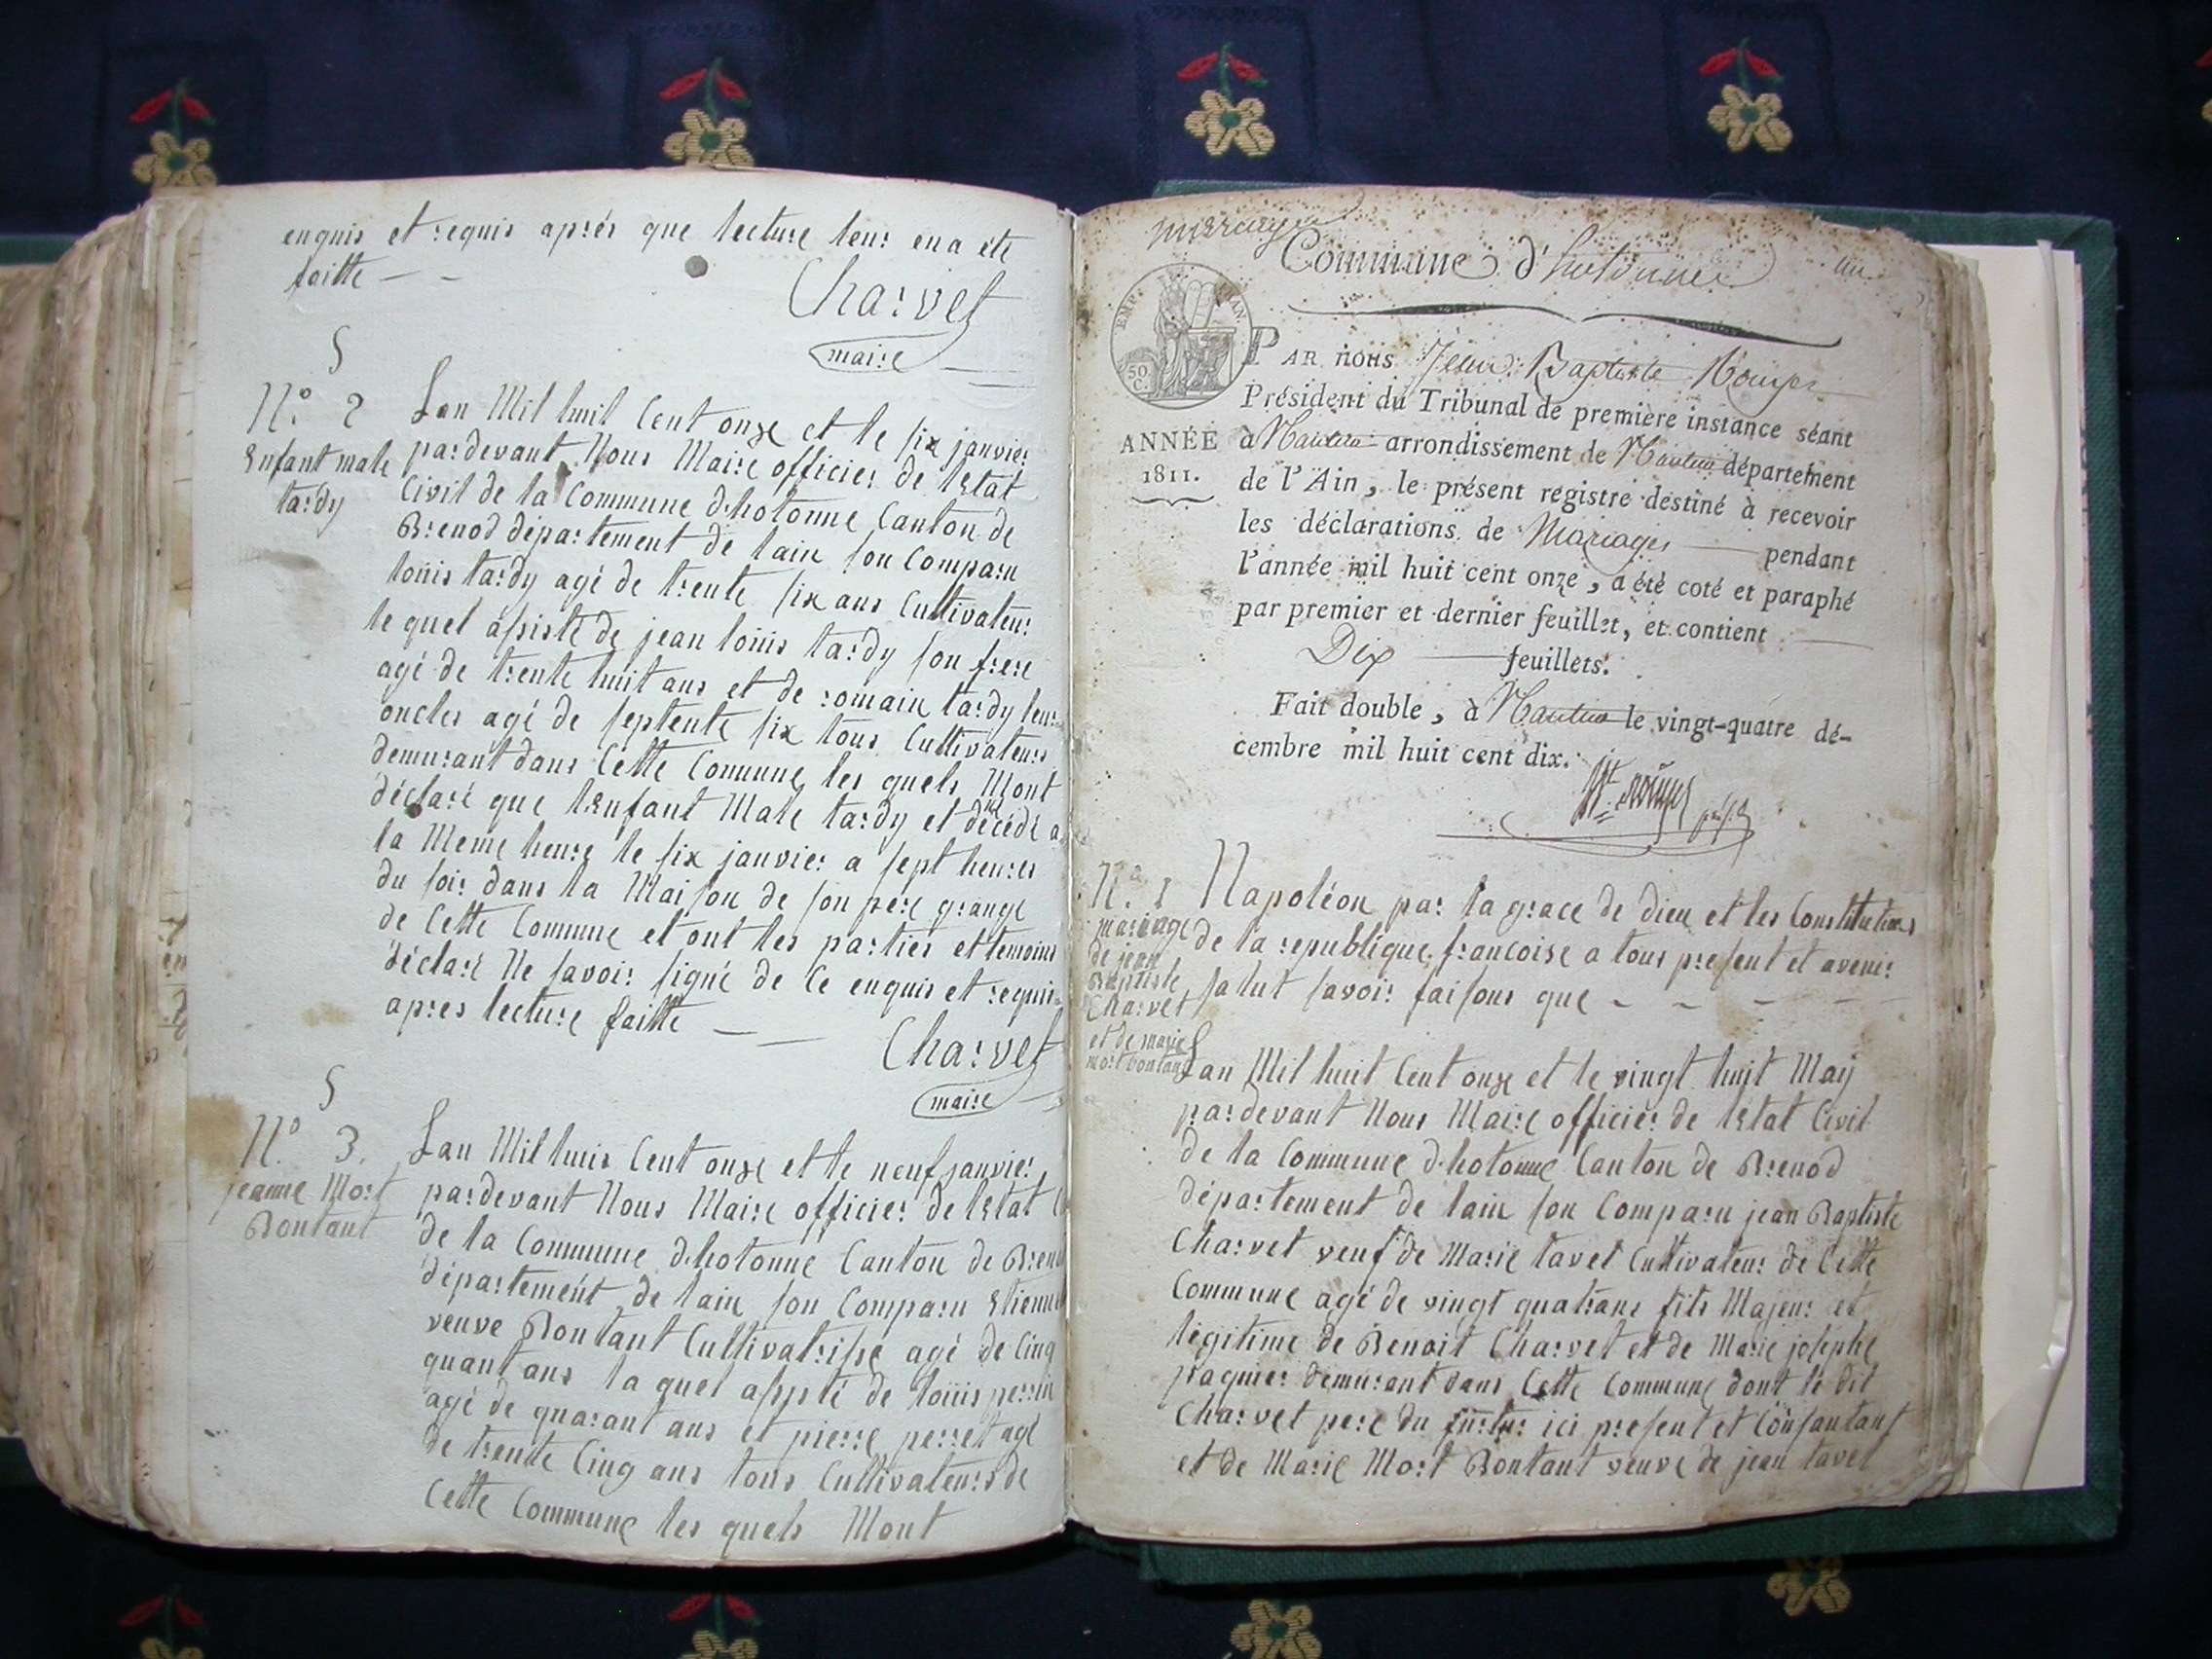 enquis et requis aprés que lecture leur en a ète
faitte — —
Charvet
maire
N.o 2
Enfant male
tardy
Lan Mil huit Cent onze et le six janvier
pardevant Nous Maire officier de lEtat
Civil de la Commune dhotonne Canton de
Brenod département de lain son Comparu
loüis tardy agé de trente six ans Cultivateur
le quel assisté de jean loüis tardy son frere
agé de trente huit ans et de romain tardy leur
oncles agé de septente six tous Cultivateurs
demurant dans Cette Comune les quels Mont
déclaré que lEnfant Male tardy et né décédé a
la Meme heure le six janvier a sept heures
du soir dans la Maison de son pere grange
de Cette Commune et ont les parties et temoins
déclaré Ne savoir signé de Ce enquis et requis
apres lecture faitte — —
Charvet
maire
N.o 3.
jeanne Mort
Bontant
Lan Mil huis Cent onze et le neuf janvier
pardevant Nous Maire officier de lEtat
de la Commune dhotonne Canton de
département de lain son Comparu
veuve Bontant Cultivatrisse agé de Cinq
quant ans la quel assité de loüis perrin
agé de quarant ans et pierre perret agé
de trente Cinq ans tous Cultivateurs de
Cette Commune les quels Mont
mariage
Commune d'hotonne
un
EMP. FRAN.
50 C.
ANNÉE
1811.
PAR nous Jean Baptiste Rouyer
Président du Tribunal de première instance séant
à Nantua arrondissement de Nantua département
de l'Ain, le présent registre destiné à recevoir
les déclarations de Mariages — pendant
l'année mil huit cent onze, a été coté et paraphé
par premier et dernier feuillet, et contient —
Dix — feuillets.
Fait double, à Nantua le vingt-quatre dé-
cembre mil huit cent dix.
N.o 1
mariage
de jean
Baptiste
Charvet
et de marie
mort bontant
Napoléon par la grace de dieu et les Constitutions
de la republique francoise a tous present et avenir
salut savoir faisons que - - - -
Lan Mil huit Cent onze et le vingt huit Maÿ
pardevant Nous Maire officier de lEtat Civil
de la Commune dhotonne Canton de Brenod
département de lain son Comparu jean Baptiste
Charvet veuf de Marie tavel Cultivateur de Cette
Commune agé de vingt quatrans fits Majeur et
légitime de Benoit Charvet et de Marie josephe
paquier demurant dans Cette Commune dont le dit
Charvet pere du furtur ici present et Consantant
et de Marie Mort Bontant veuve de jean tavel